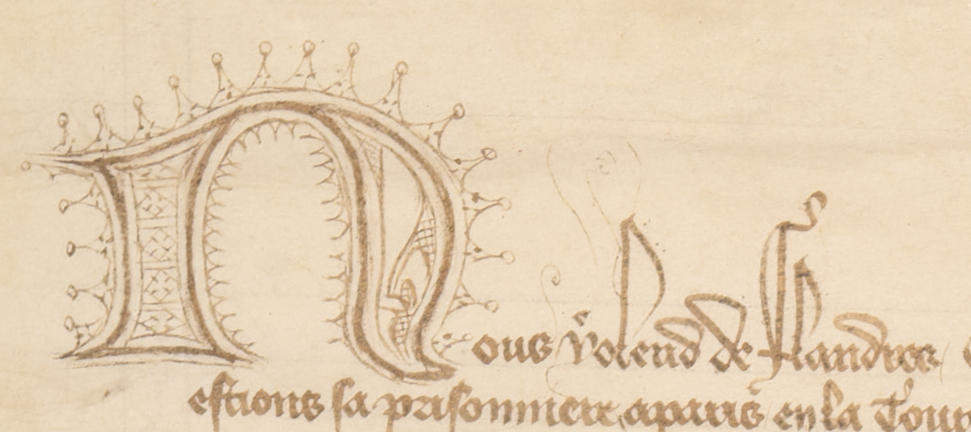 Nous yolend de flandres
estions sa prisonniere a paris en la Tour